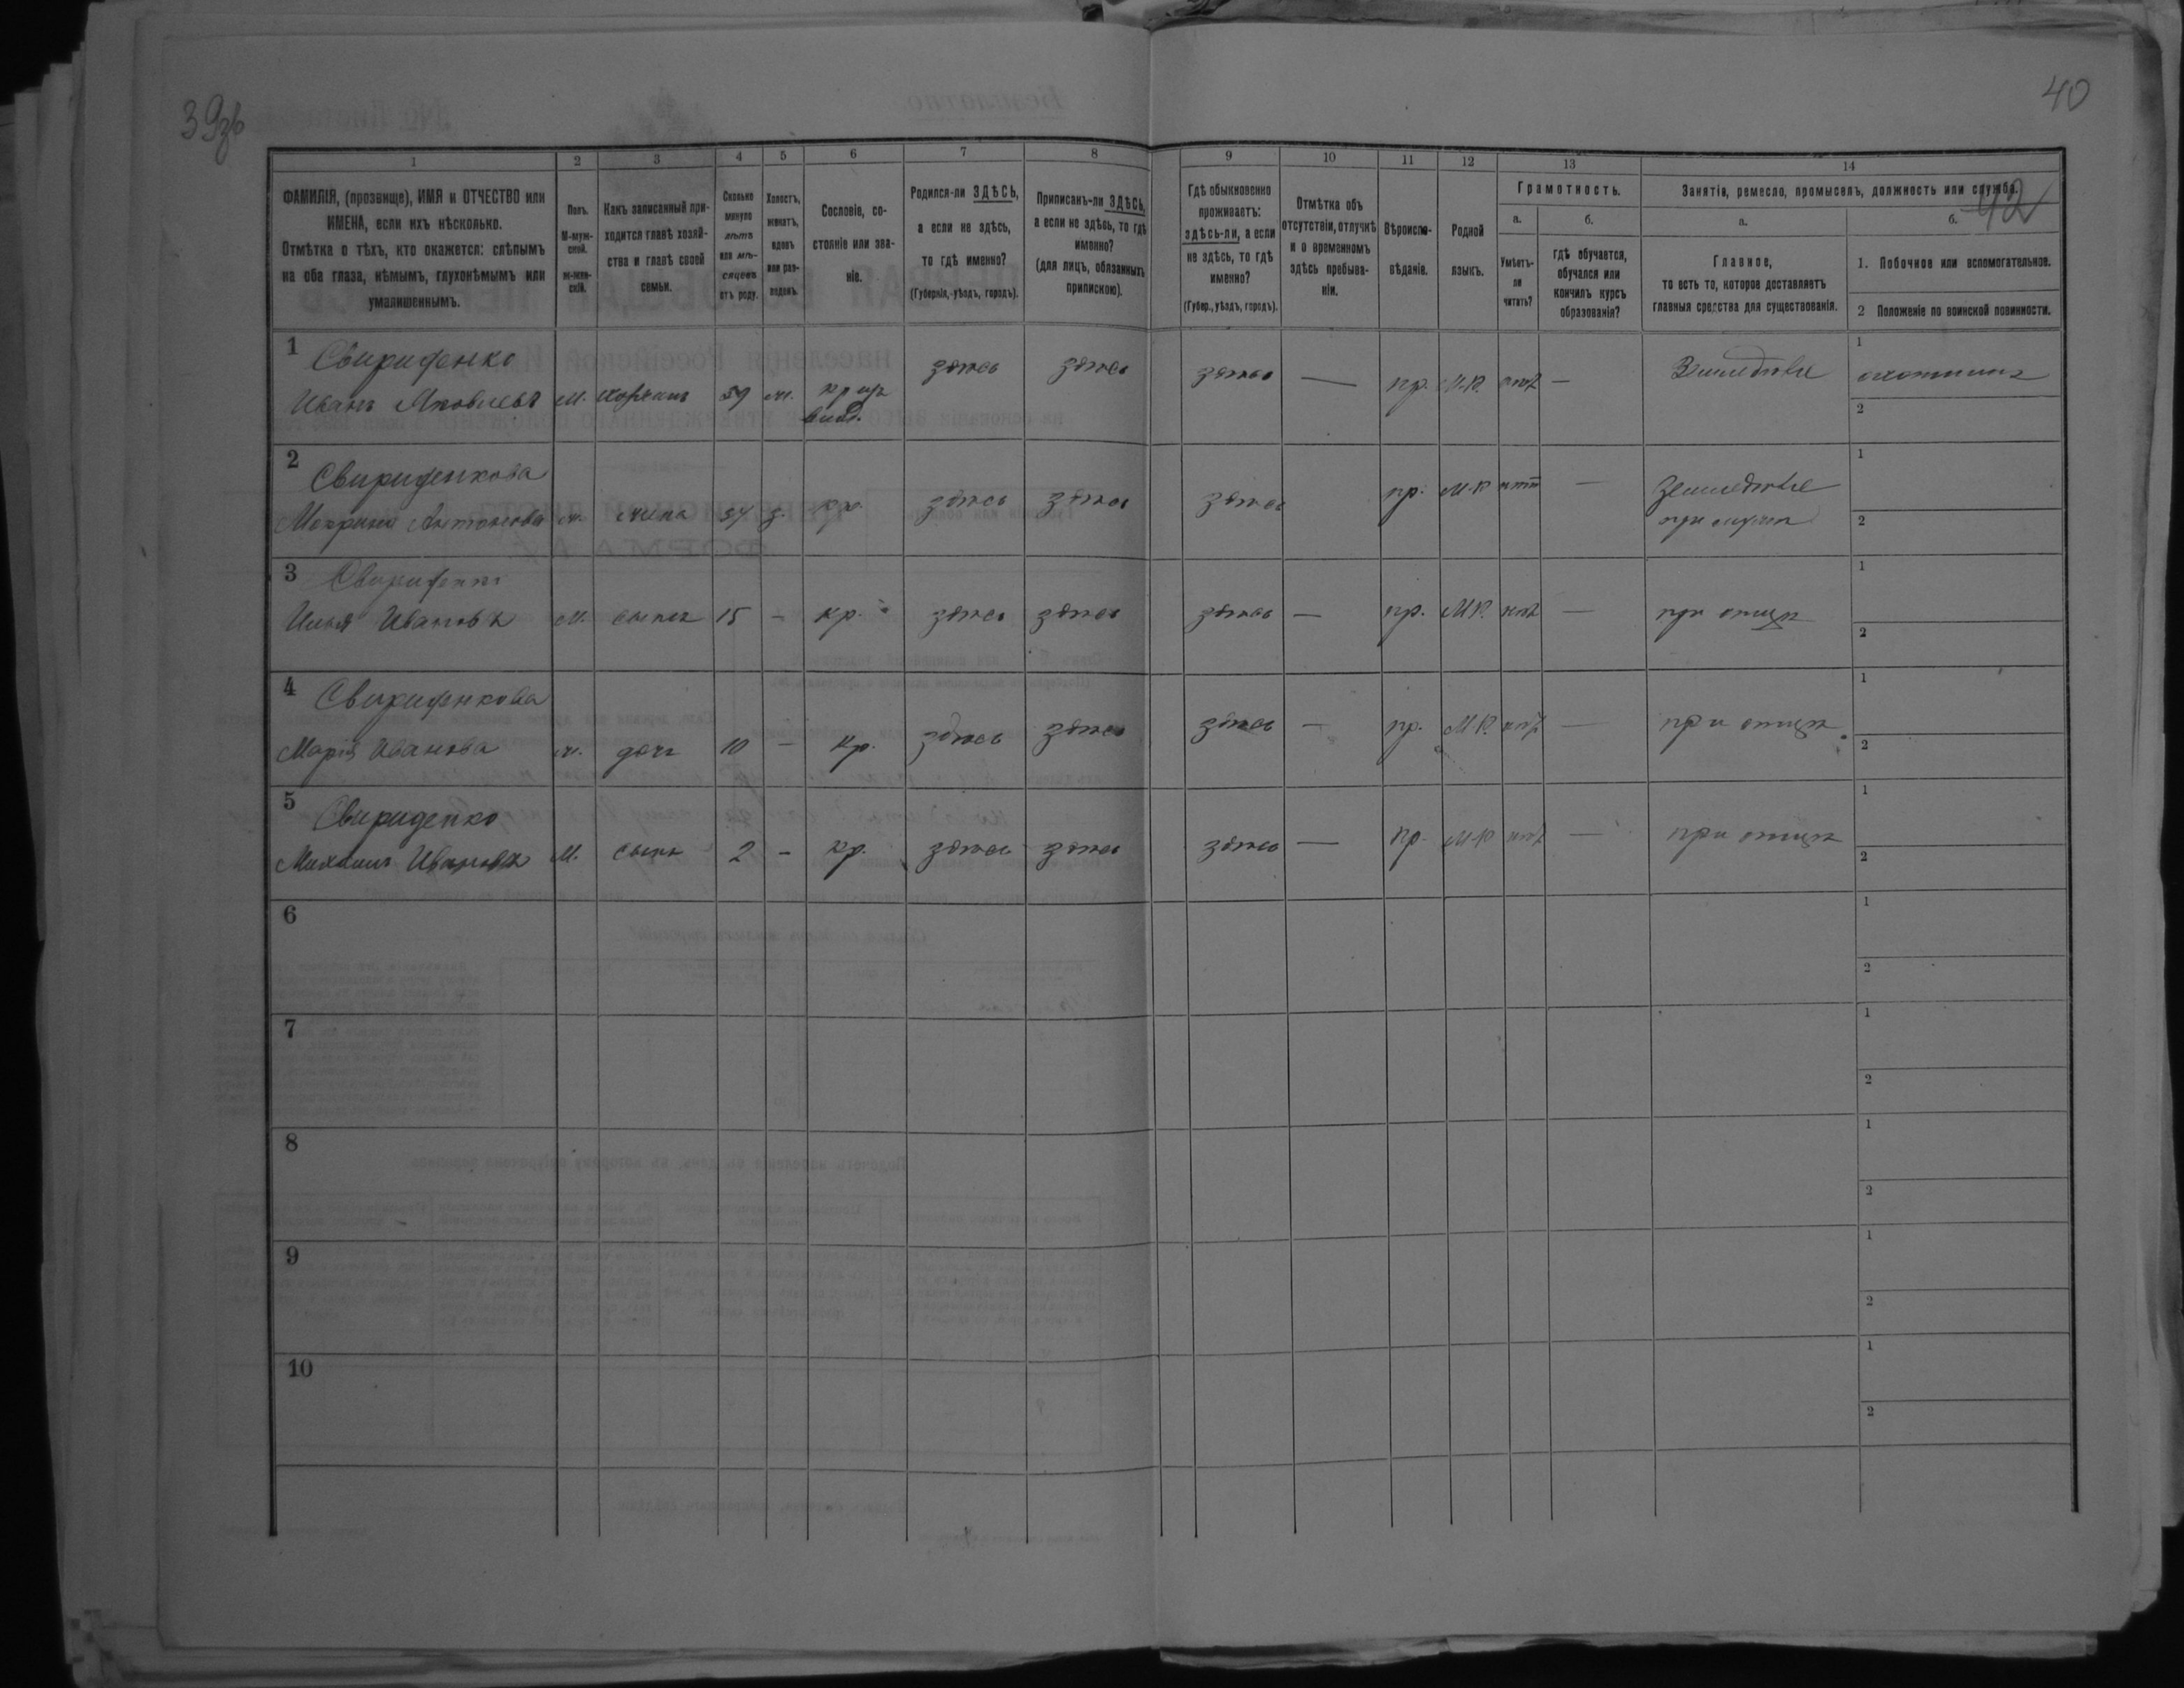 39зв
40
42
1
2
3
4
5
6
7
8
9
10
11
12
13
14
ФАМИЛІЯ, (прозвище), ИМЯ и ОТЧЕСТВО или
ИМЕНА, если ихъ нѣсколько.
Отмѣтка о тѣхъ, кто окажется: слѣпымъ
на оба глаза, нѣмымъ, глухонѣмымъ или
умалишеннымъ.
Полъ.
М-муж-
ской.
ж-жен-
скій.
Какъ записанный при-
ходится главѣ хозяй-
ства и главѣ своей
семьи.
Сколько
минуло
лѣтъ
или мѣ-
сяцевъ
отъ роду.
Холостъ,
женатъ,
вдовъ
или раз-
веденъ.
Сословіе, со-
стояніе или зва-
ніе.
Родился-ли ЗДѢСЬ,
а если не здѣсь,
то гдѣ именно?
(Губернія, уѣздъ, городъ).
Приписанъ-ли ЗДѢСЬ,
а если не здѣсь, то гдѣ
именно?
(для лицъ, обязанныхъ
припискою).
Гдѣ обыкновенно
проживаетъ:
здѣсь-ли, а если
не здѣсь, то гдѣ
именно?
(Губер., уѣздъ, городъ).
Отмѣтка объ
отсутствіи, отлучкѣ
и о временномъ
здѣсь пребыва-
ніи.
Вѣроиспо-
вѣданіе.
Родной
языкъ.
Грамотность.
а.
Умѣетъ-
ли
читать?
б.
гдѣ обучается,
обучался или
кончилъ курсъ
образованія?
Занятія, ремесло, промыселъ, должность или служба.
а.
Главное,
то есть то, которое доставляетъ
главныя средства для существованія.
б.
1. Побочное или вспомогательное.
2 Положеніе по воинской повинности.
1
Свириденко
Иванъ Яковлевъ М. хозяинъ 59 ж. здѣсь здѣсь здѣсь — пр. М.Р. нѣтъ — Земледѣліе
1
2
2
Свириденкова
Антонова ж. жена 54 з. кр. здѣсь здѣсь здѣсь пр. М.Р. нѣтъ — Земледѣліе
при мужѣ
1
2
3
Свириденко
Илья Ивановъ М. сынъ 15 - кр. здѣсь здѣсь здѣсь — пр. М.Р. нѣтъ — при отцѣ
1
2
4
Свириденкова
Марія Иванова ж. дочь 10 — кр. здѣсь здѣсь здѣсь — пр. М.Р. нѣтъ — при отцѣ
1
2
5
Свириденко
Михаилъ Ивановъ М. сынъ 2 - кр. здѣсь здѣсь здѣсь — пр. М.Р. нѣтъ — при отцѣ
1
2
6
1
2
7
1
2
8
1
2
9
1
2
10
1
2